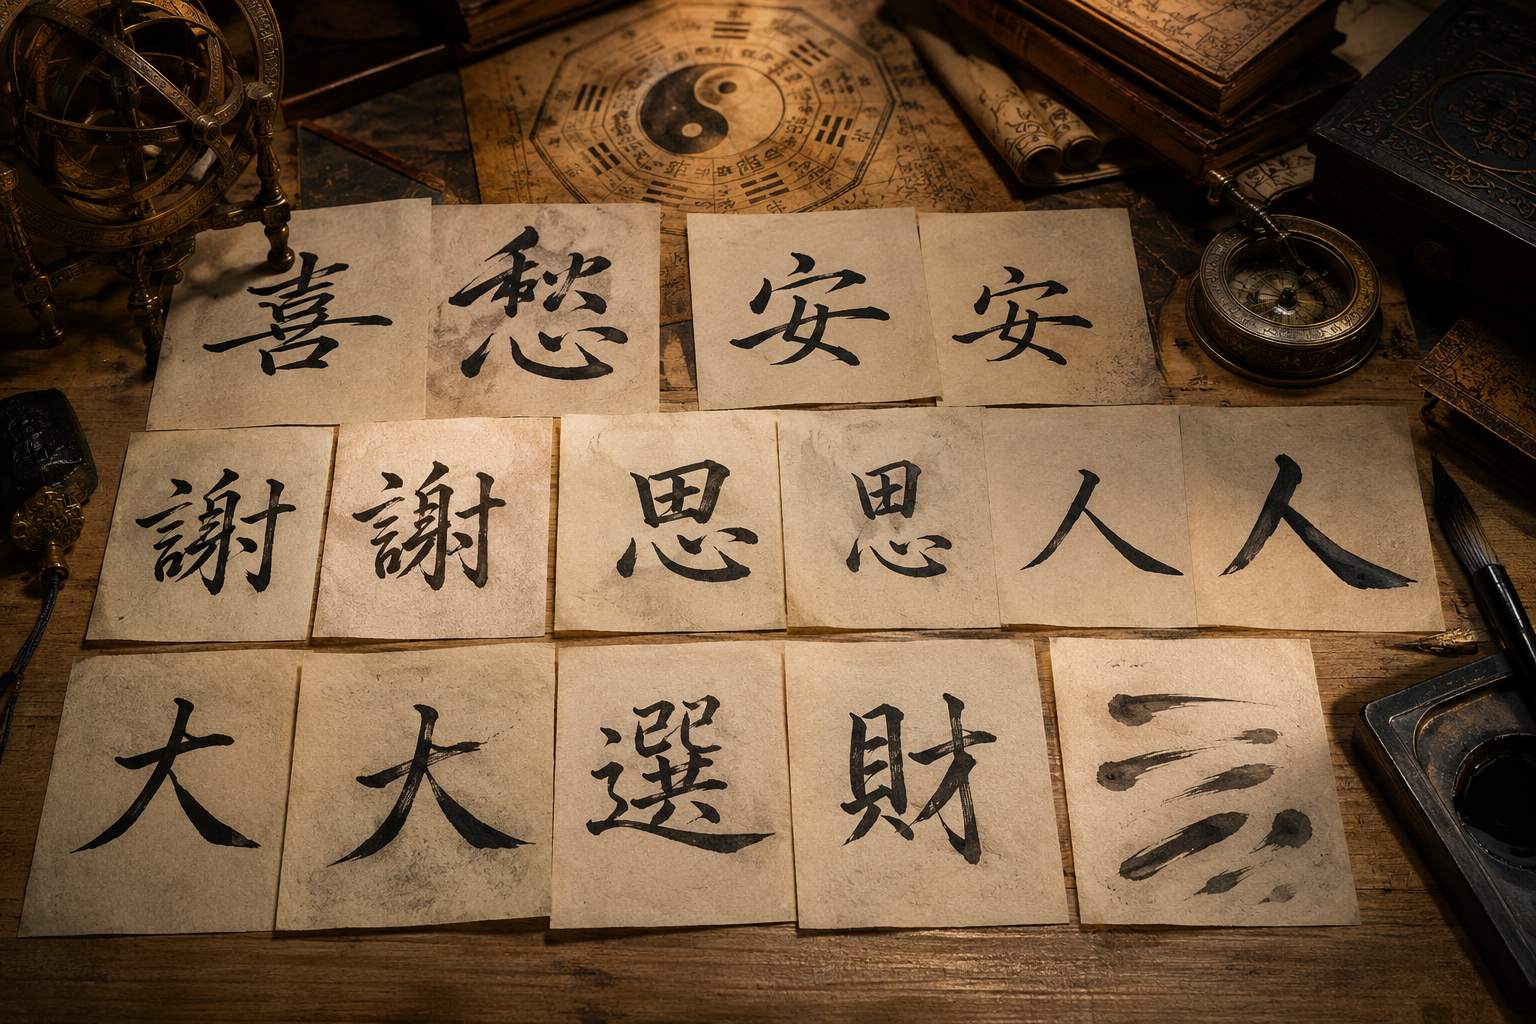 喜愁安安
謝謝思思人人
大大選財